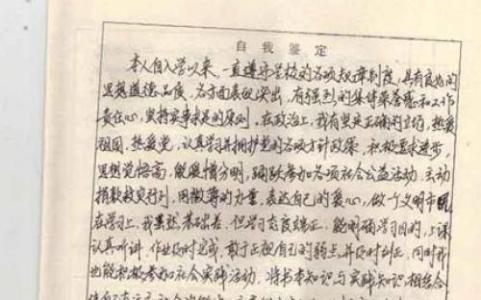 自我鉴定
本人自入学以来,一直遵守学校的各项规章制度,具有良好的
思想道德品质,各方面表现突出,有强烈的集体荣誉感和工作
责任心,坚持实事求是的原则。在政治上,我有坚定正确的立场,热爱
祖国,热爱党,认真学习并拥护党的各项方针政策,积极要求进步,
思想觉悟高,能爱憎分明,踊跃参加各项社会公益活动,主动
捐款救灾行列,用微薄的力量,表达自己的爱心,做一个文明市民
在学习上,我虽然基础差,但学习态度端正,能明确学习目的,上课
认真听讲,作业及时完成,敢于正视自己的弱点并及时纠正,同时我
也能积极参加社会实践活动,将书本知识与实践知识相结合